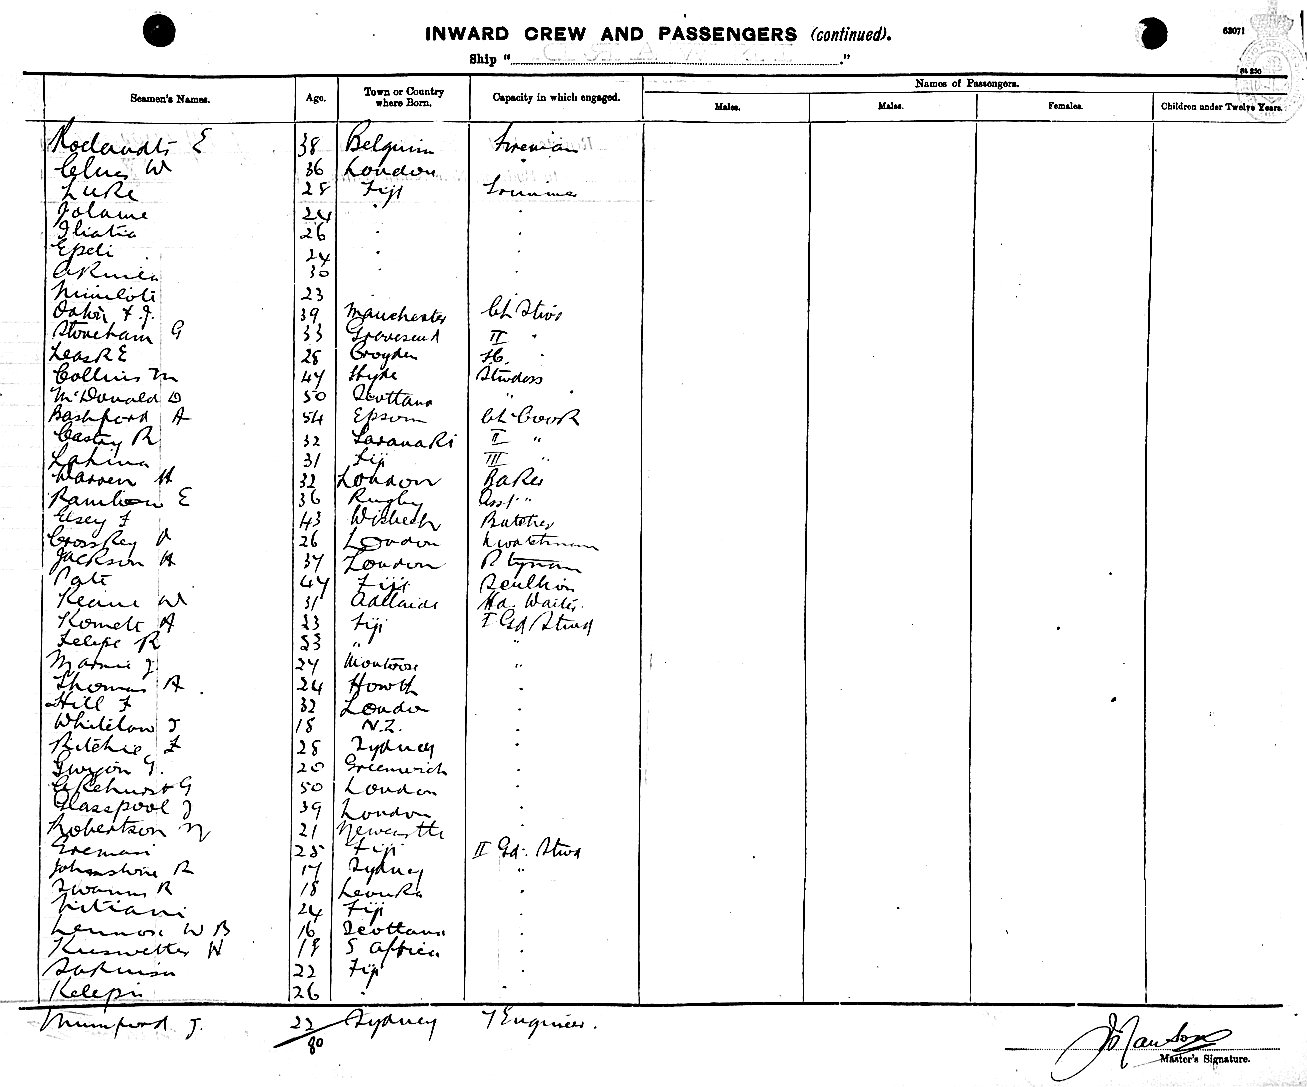 INWARD CREW AND PASSENGERS (continued).
63071
Ship " "
Seamen's Names. Age. Town or Country where Born. Capacity in which engaged. Names of Passengers.
Males. Males. Females. Children under Twelve Years.
E 38 Belguim Fireman
W 36 London "
Luke 28 Fiji Trimmer
Jolame 24 " "
Iliatia 26 " "
Epeli 24 " "
30 " "
23
39 Manchester Ch Stwd
Stoneham G 33 Gravesend II "
Leask E 28 Croydon
Collins M 47 Hyde Stwdess
McDonald D 50 Scotland "
Bashford A 54 Epsom Ch Cook
R 32 Taranaki II "
31 Fiji III "
Warren H 32 London Baker
E 36 Rugby Asst "
Elsey F 43 Wisbech Butcher
26 London
Jackson H 37 London
47 Fiji Scullion
Keane W 31 Adlaide Hd. Waiter.
A 23 Fiji I Gd Stwd
Felipe R 23 " "
J 24 Montrose "
Thomas A 24 Howth "
Hill F 32 London "
Whitelaw J 18 N.Z. "
Ritchie F 28 Sydney "
G. 20 Greenwich "
Akehurst G 50 London "
Glasspool J 39 London "
Robertson N 21 Newcastle "
28 Fiji II Gd. Stwd
Johnstone R 17 Sydney "
R 18 Levuka "
24 Fiji "
Lennox W B 16 Scotland "
N 19 S Africa "
22 Fiji "
Kelepi 26 " "
Mumford J. 22 Sydney 7 Engineer.
80
Master's Signature.